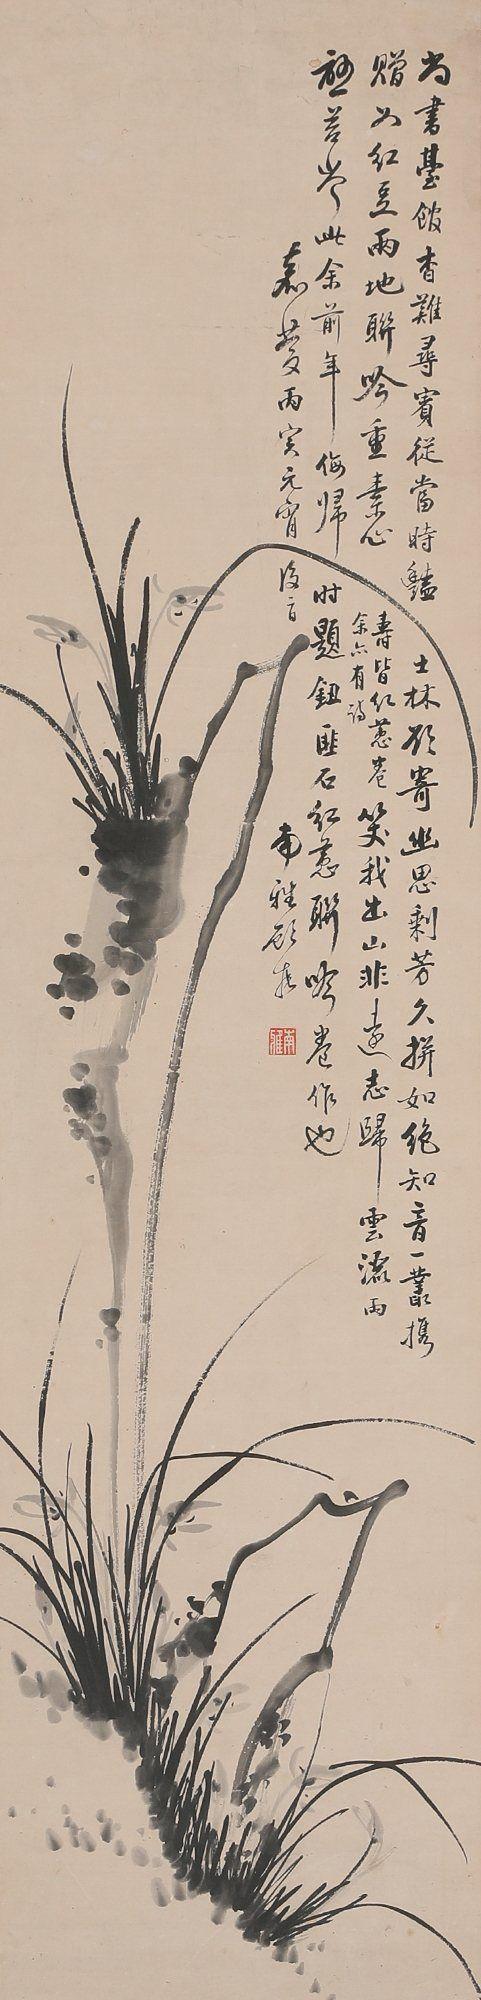 尚書臺館杳難尋賓從當時豔士林欲寄幽思剩芳久拚如絕知音一叢攜
贈如紅豆兩地聯吟重素心壽皆紅蕙卷余亦有詩笑我出山非遠志歸雲流雨
此余前年侮歸時題鈕匪石紅蕙聯吟卷作也
嘉慶丙寅元宵後一日
南雅
南雅